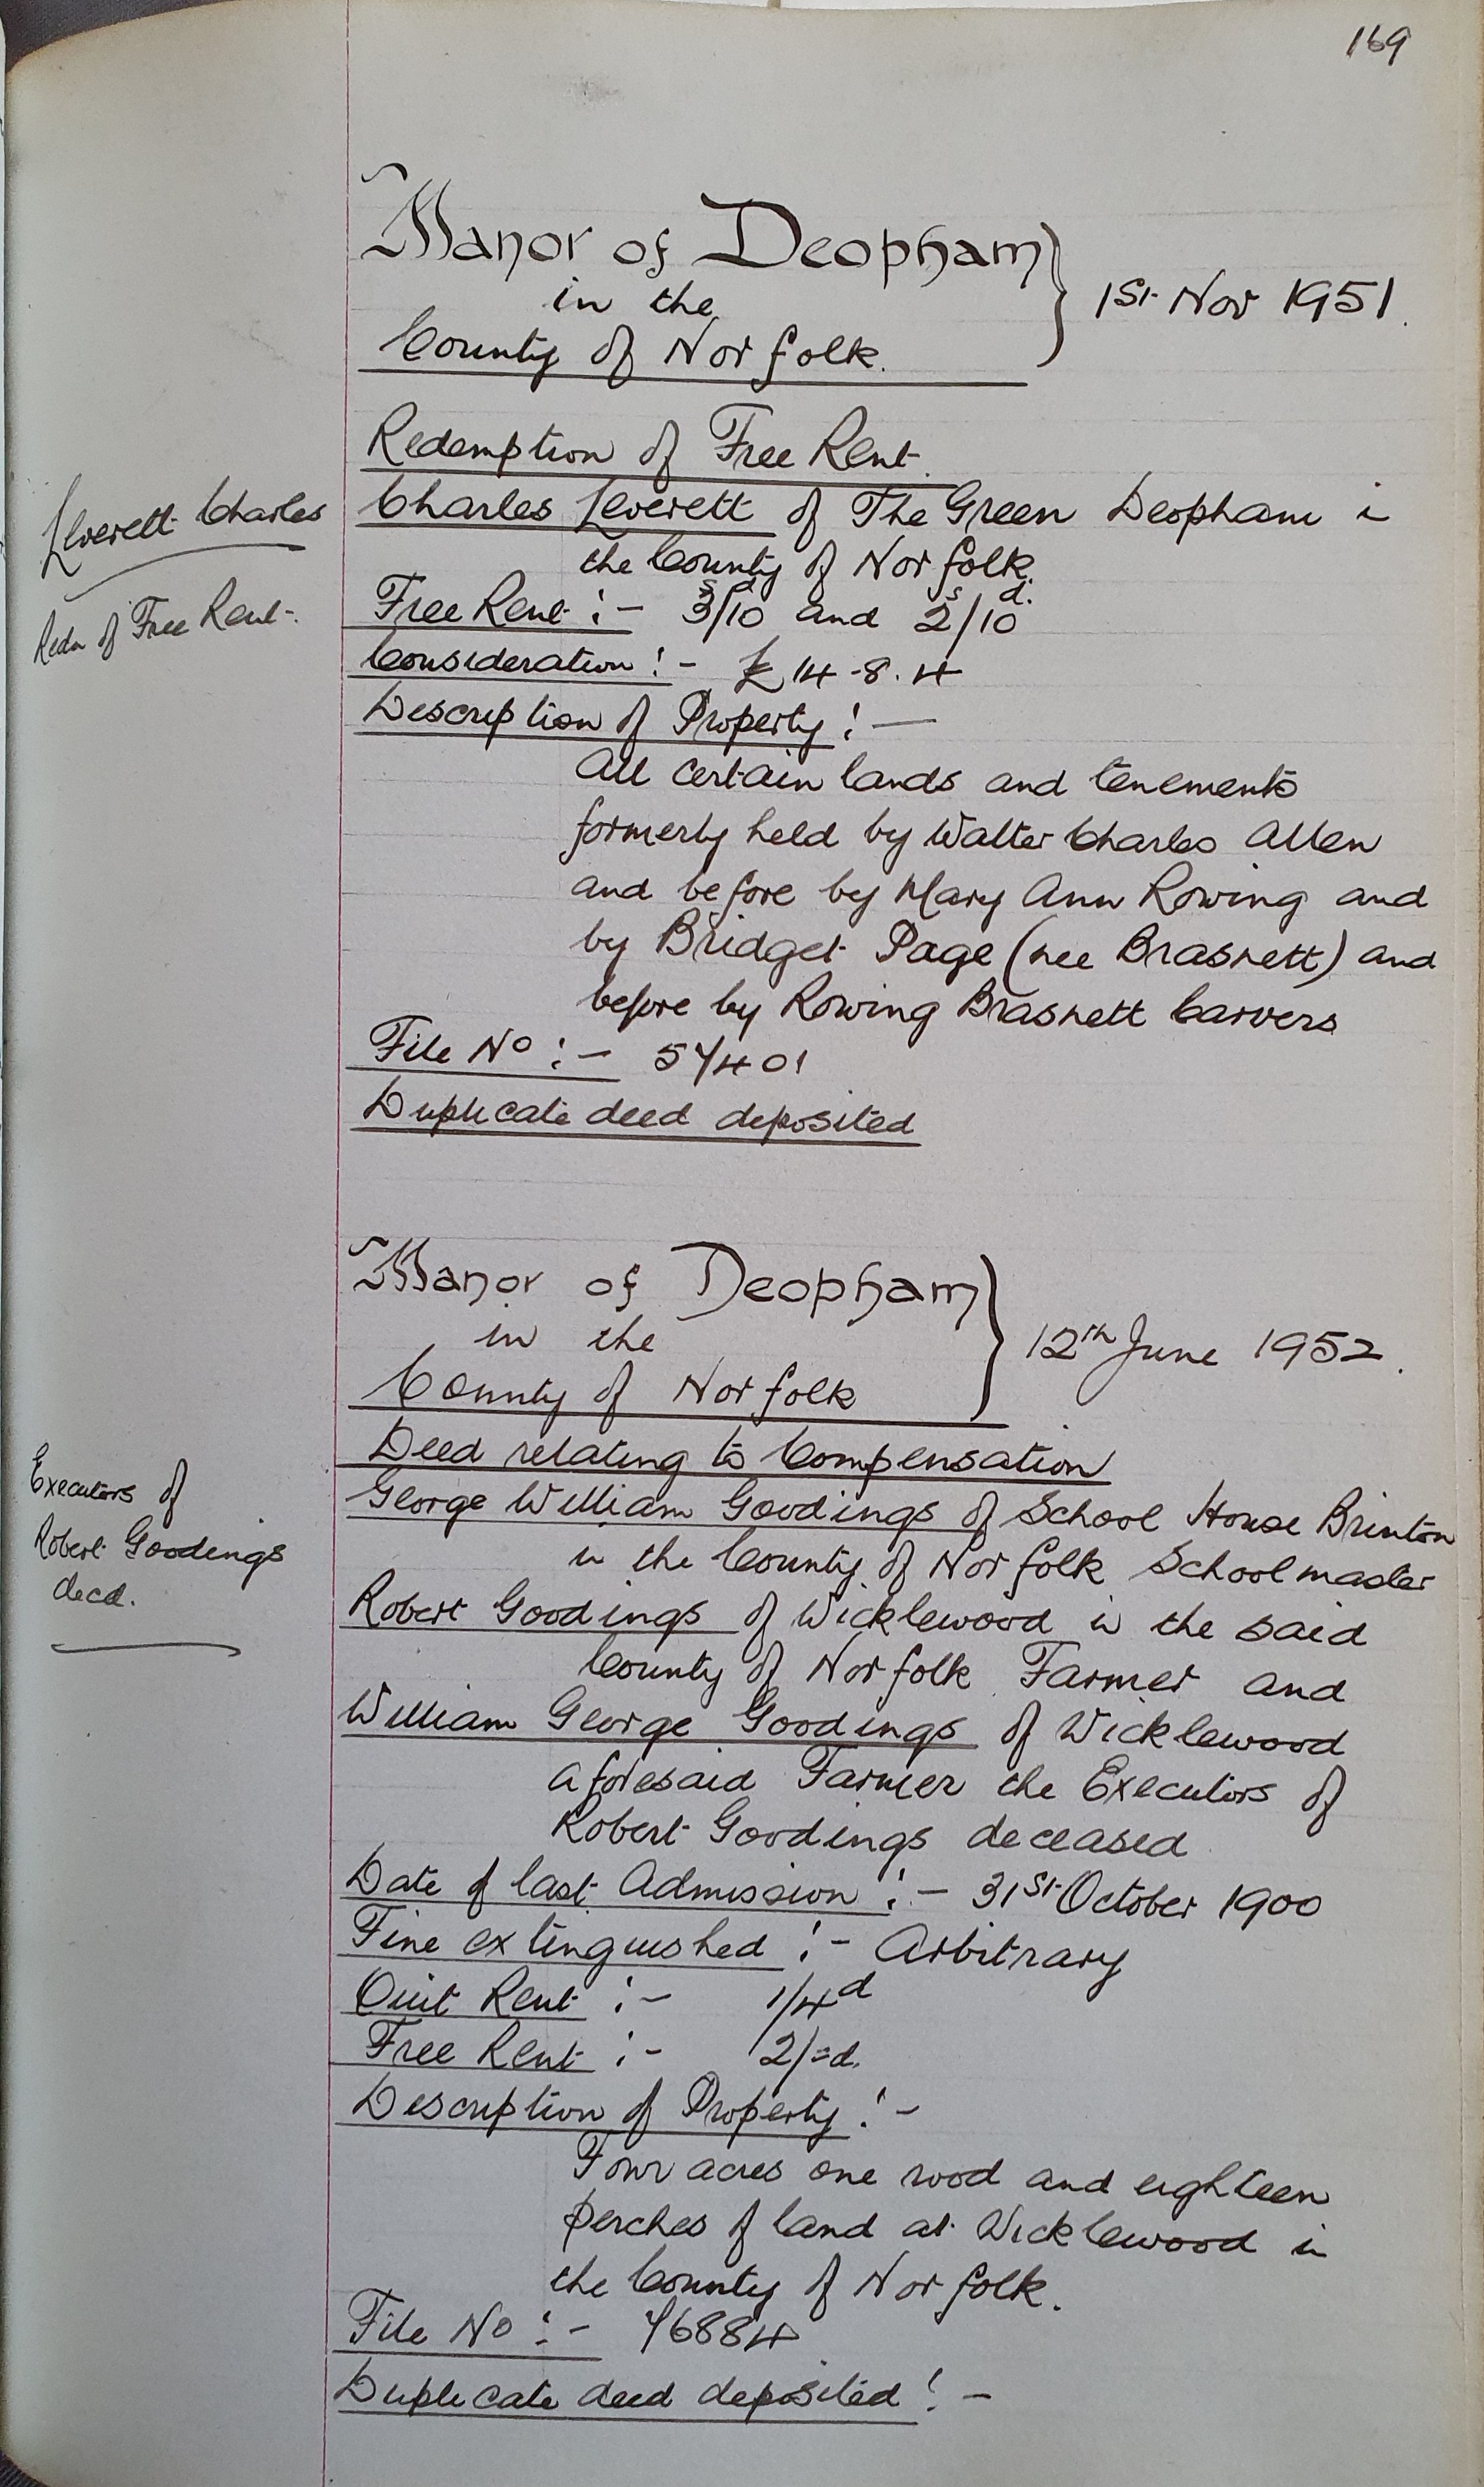 169
Manor of Deopham
in the
County of Norfolk.
1st Nov 1951.
Redemption of Free Rent.
Leverett Charles
Redn of Free Rent.
Charles Leverett of The Green Deopham in
the County of Norfolk.
Free Rent :- 3s/10d and 2s/10d.
Consideration :- £14-8.4
Description of Property :-
All certain lands and tenements
formerly held by Walter Charles Allen
and before by Mary Ann Rowing and
by Bridget Page (nee Brasnett) and
before by Rowing Brasnett Carvers
File No :- 57401
Duplicate deed deposited
Manor of Deopham
in the
County of Norfolk
12th June 1952.
Deed relating to Compensation
Executors of
Robert Goodings
decd.
George William Goodings of School House Brinton
in the County of Norfolk Schoolmaster
Robert Goodings of Wicklewood in the said
County of Norfolk Farmer and
William George Goodings of Wicklewood
aforesaid Farmer the Executors of
Robert Goodings deceased
Date of last Admission :- 31st October 1900
Fine extinguished :- Arbitrary
Quit Rent :- 1/4d
Free Rent :- 2/=d.
Description of Property :-
Four acres one rood and eighteen
perches of land at Wicklewood in
the County of Norfolk.
File No :- 76884
Duplicate deed deposited :-